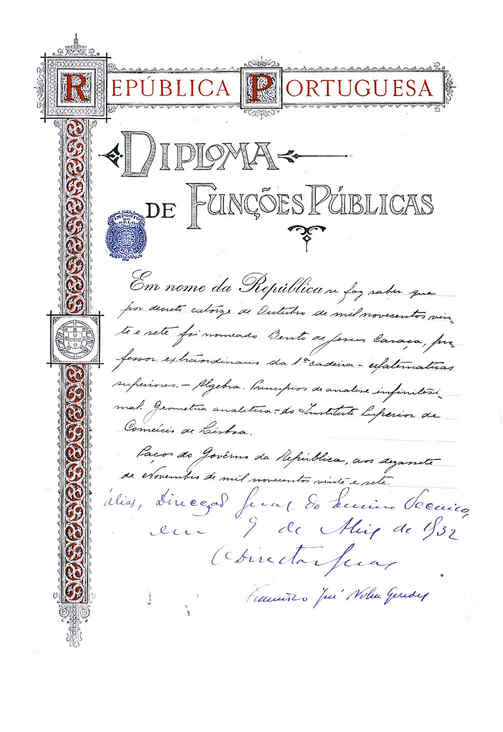 REPÚBLICA PORTUGUESA
DIPLOMA
DE FUNÇÕES PÚBLICAS
Em nome da República se faz saber que
por decreto catorze de Outubro de mil novecentos vin-
te e sete foi nomeado Bento de Jesus Caraça, pro-
fessor extraordinario da 1ª cadeira - Matematicas
superiores. - Algebra. Principios de analise infinitesi-
mal. Geometria analitica - do Instituto Superior de
Comércio de Lisboa.
Paços do Govêrno da República, aos dezassete
de Novembro de mil novecentos vinte e sete.
aliás, Direcção Geral do Ensino Tecnico,
em 9 de Abril de 1932
O Director Geral
Francisco José Nobre Guedes